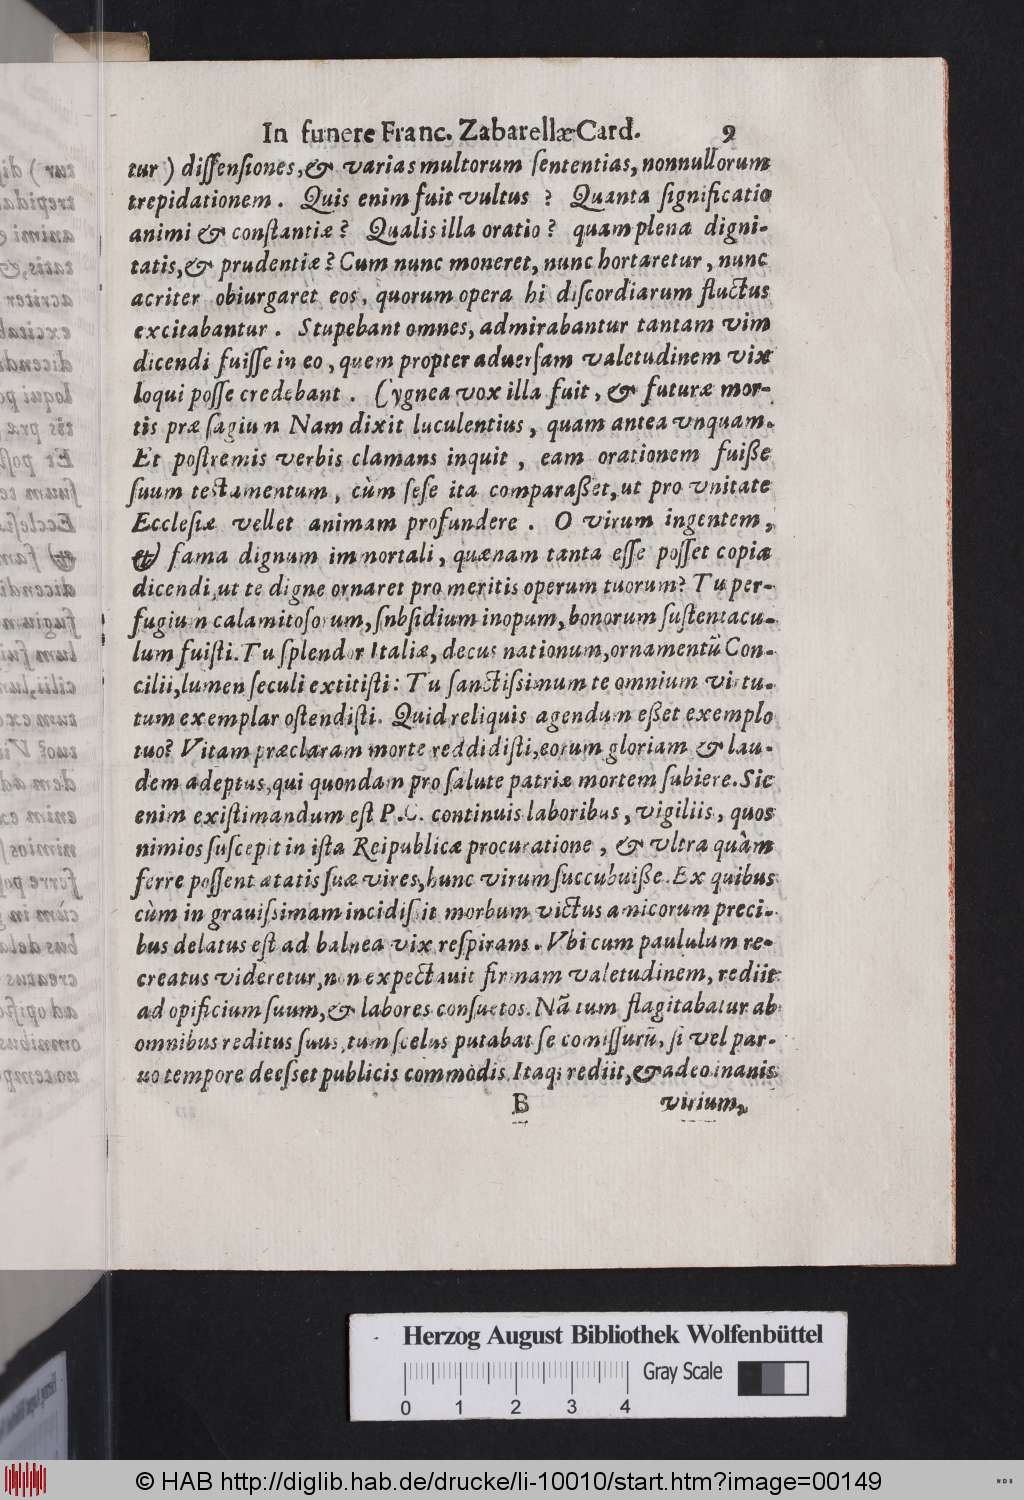 In funere Franc. Zabarellæ Card. 9
tur) dissensiones, & varias multorum sententias, nonnullorum
trepidationem. Quis enim fuit vultus? Quanta significatio
animi & constantiæ? Qualis illa oratio? quam plena digni-
tatis, & prudentiæ? Cum nunc moneret, nunc hortaretur, nunc
acriter obiurgaret eos, quorum opera hi discordiarum fluctus
excitabantur. Stupebant omnes, admirabantur tantam vim
dicendi fuisse in eo, quem propter aduersam valetudinem vix
loqui posse credebant. Cygnea vox illa fuit, & futuræ mor-
tis præsagium Nam dixit luculentius, quam antea vnquam.
Et postremis verbis clamans inquit, eam orationem fuiße
suum testamentum, cùm sese ita comparaßet, ut pro vnitate
Ecclesiæ vellet animam profundere. O virum ingentem,
& fama dignum immortali, quænam tanta esse posset copia
dicendi, ut te digne ornaret pro meritis operum tuorum? Tu per-
fugium calamitosorum, snbsidium inopum, bonorum sustentacu-
lum fuisti. Tu splendor Italiæ, decus nationum, ornamentũ Con-
cilii, lumen seculi extitisti: Tu sanctissimum te omnium virtu-
tum exemplar ostendisti. Quid reliquis agendum eßet exemplo
tuo? Vitam præclaram morte reddidisti, eorum gloriam & lau-
dem adeptus, qui quondam pro salute patriæ mortem subiere. Sic
enim existimandum est P.C. continuis laboribus, vigiliis, quos
nimios suscepit in ista Reipublicæ procuratione, & vltra quàm
ferre possent ætatis suæ vires, hunc virum succubuiße. Ex quibus
cùm in grauissimam incidissit morbum victus amicorum preci-
bus delatus est ad balnea vix respirans. Vbi cum paululum re-
creatus videretur, non expectauit firmam valetudinem, rediit
ad opificium suum, & labores consuetos. Nã tum flagitabatur ab
omnibus reditus suus, tum scelus putabat se comissurũ, si vel par-
uo tempore deesset publicis commodis. Itaq; rediit, & adeo inanis
B virium,
Herzog August Bibliothek Wolfenbüttel
Gray Scale
0 1 2 3 4
© HAB http://diglib.hab.de/drucke/li-10010/start.htm?image=00149